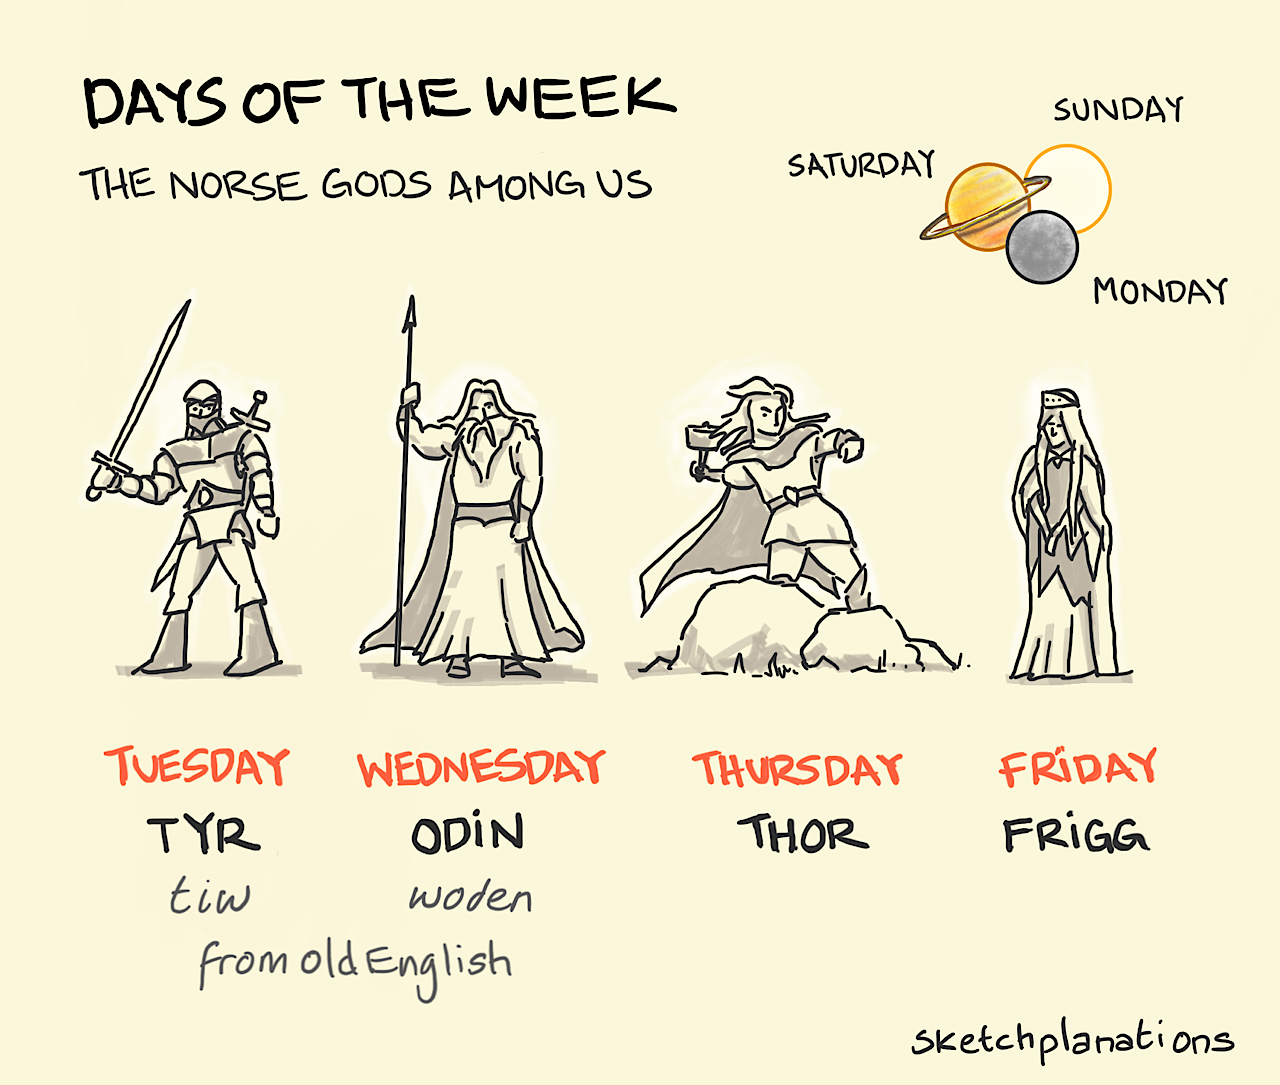 DAYS OF THE WEEK
THE NORSE GODS AMONG US
SUNDAY
SATURDAY
MONDAY
TUESDAY WEDNESDAY THURSDAY FRIDAY
TYR ODIN THOR FRIGG
tiw woden
from old English
sketchplanations